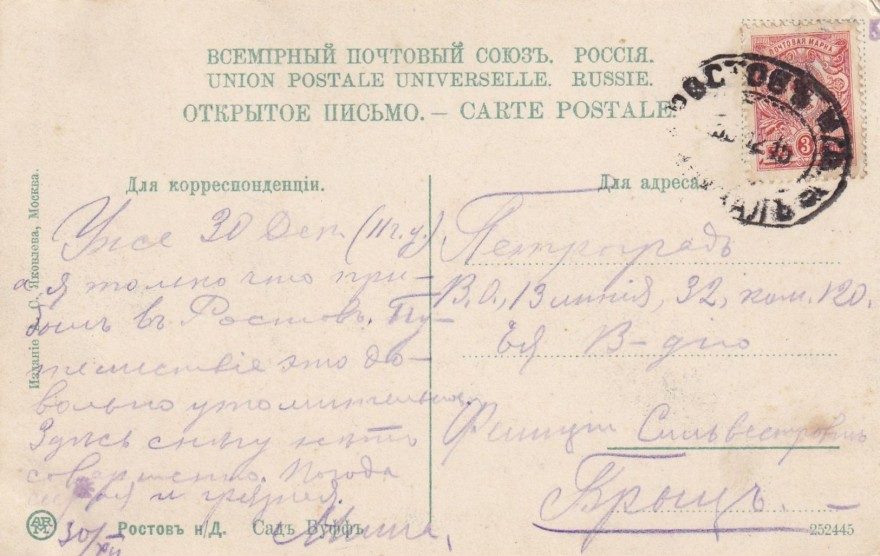 ВСЕМІРНЫЙ ПОЧТОВЫЙ СОЮЗЪ. РОССІЯ.
UNION POSTALE UNIVERSELLE. RUSSIE.
ОТКРЫТОЕ ПИСЬМО. — CARTE POSTALE.
ПОЧТОВАЯ МАРКА
3
РОСТОВЪ
Для корреспонденціи.
Уже 30 Дек. (11 ч. у.)
а я только что при-
былъ въ Ростовъ. Пу-
тешествіе это до-
вольно утомительное.
Здѣсь снѣгу нѣтъ
совершенно. Погода
сырая и грязная.
Миша.
30/XII
Для адреса.
Петроградъ
В. О., 13 линія, 32, ком. 120.
Ея В-дію
Сильвестровнѣ
Брыцъ.
Изданіе С. Яковлева, Москва.
Ростовъ н/Д. Садъ Буффъ
252445